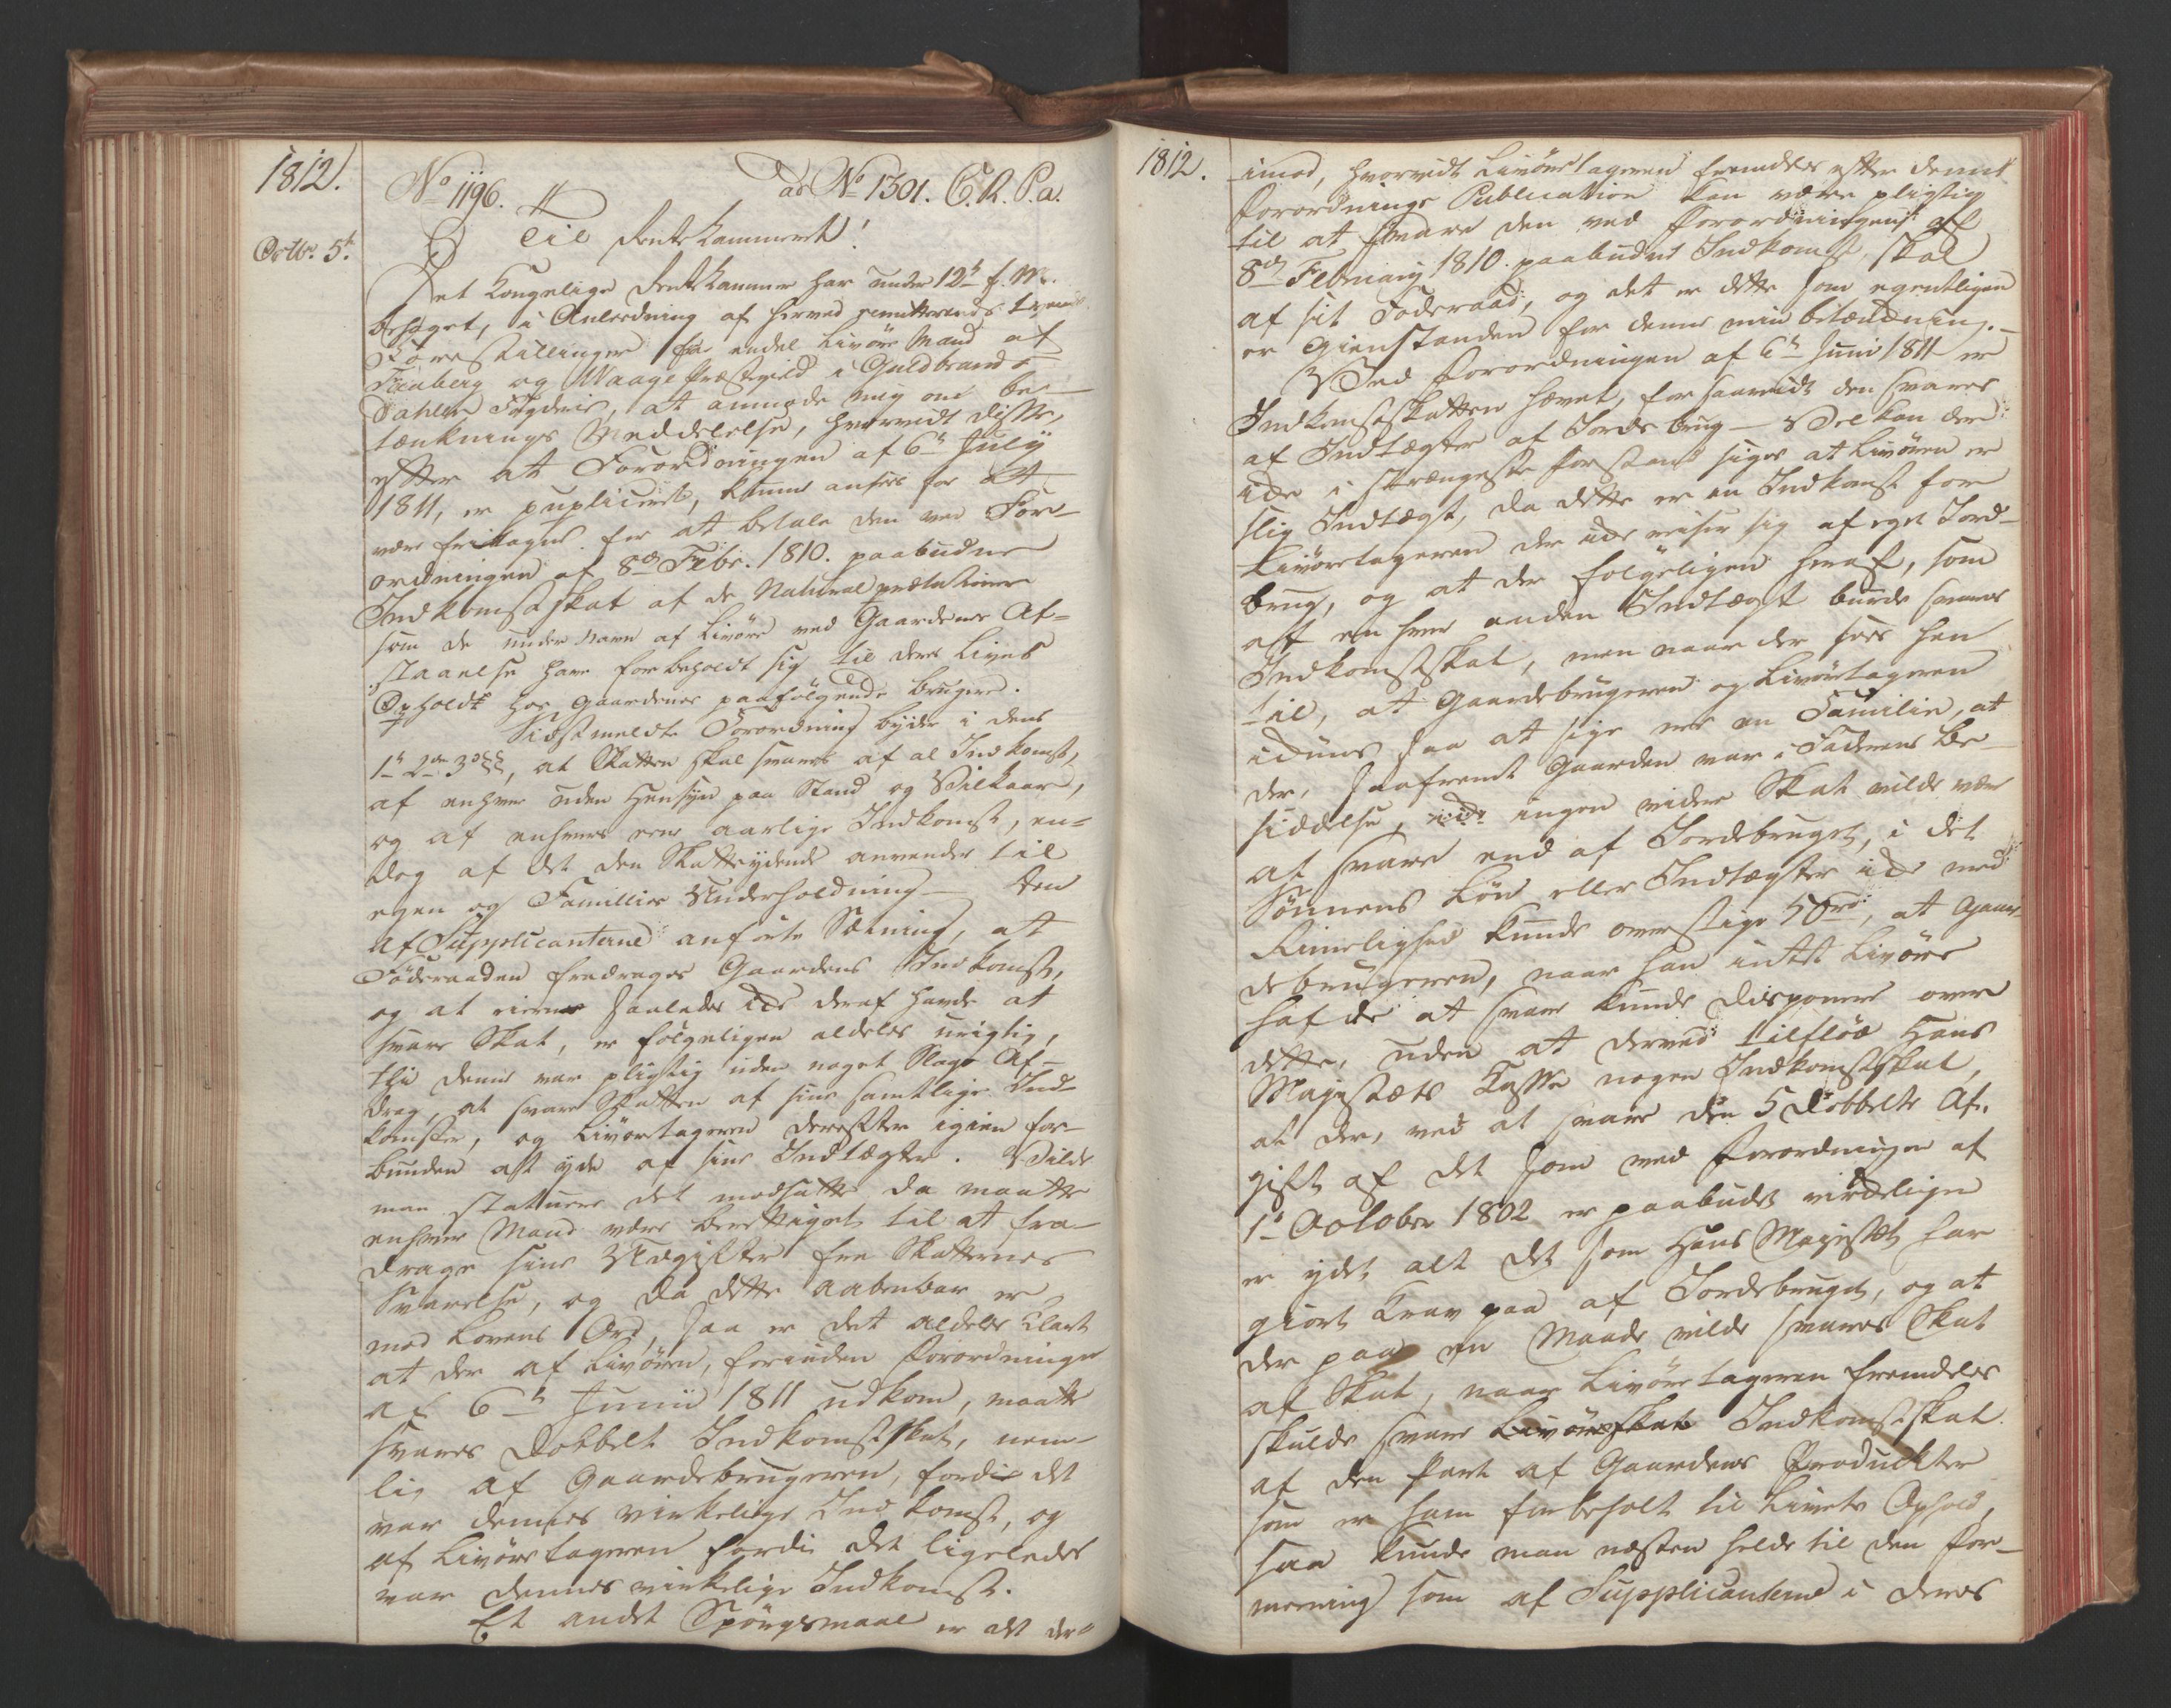 1812.
No 1196.
ad No 1301. C. R. P. a.
Octbr. 5t.
Til Rentekammeret!
Det Kongelige Rentekammer har under 12te f. M.
behaget, i Anledning af hermed remitterende trende
Forestillinger fra endel Livöre Mænd af
Froneberg og Waage Præstegield i Guldbrands
Dahlens Fogderie, at anmode mig om Be-
tænknings Meddelelse, hvorvidt disse,
efter at Forordningen af 6te July
1811, er publiceret, kunne ansees for at
være fritagne for at betale den ved For-
ordningen af 8de Febr. 1810. paabudne
Indkomstskat af de Natural præstationer
som de under Navn af Livöre ved Gaardenes Af-
staaelse have forbeholdt sig til deres Livs
Ophold hos Gaardenes paafölgende Brugere.
Sidstmeldte Forordning byder i dens
1te 2den 3de §§, at Skatten skal svares af al Indkomst,
af enhver uden Hensyn paa Stand og Vilkaar,
og af enhvers rene aarlige Indkomst, en-
dog af det den Skatteydende anvender til
egen og Familiens Underholdning – den
af Supplicanterne anförte Sætning, at
Föderaaden fradrages Gaardens Indkomst,
og at eieren saaledes ikke deraf havde at
svare Skat, er fölgeligen aldeles urigtig,
thi denne var pligtig uden noget Slags Af-
drag, at svare Skatten af sine samtlige Ind-
komster, og Livörtageren derefter igien for-
bunden at yde af sine Indtægter. Vilde
man statuere det modsatte da maatte
enhver Mand være berettiget til at fra-
drage sine Udgifter fra Skatternes
Svarelse, og da dette aabenbar er
mod Lovens Ord, saa er det aldeles klart
at der af Livören, forinden Forordningen
af 6te Junii 1811 udkom, maatte
svares dobbelt Indkomstskat, nem-
lig af Gaardebrugeren, fordi det
var dennes virkelige Indkomst, og
af Livörtageren fordi det ligeledes
var dennes virkelige Indkomst.
Et andet Spörgsmaal er det der-
1812.
imod, hvorvidt Livörtageren fremdeles efter denne
Forordnings Publication kan være pligtig
til at svare den ved Forordningen af
8de February 1810. paabudne Indkomst skat
af sit Föderaad, og det er dette som egentligen
er Gienstanden for denne min betænkning. –
Ved Forordningen af 6te Juni 1811 er
Indkomstskatten hævet, forsaavidt den svares
af Indtægter af Jordbrug – Vel kan der
ikke i strængeste Forstand siges at Livören er
slig Indtægt, da dette er en Indkomst for
Livörtageren der ikke reiser sig af eget Jord-
brug, og at der fölgeligen heraf, som
af en hver anden Indtægt burde svares
Indkomstskat, men naar der sees hen
til, at Gaardebrugeren og Livörtageren
udgiør saa at sige een Familie, at
der, saafremt Gaarden var i Faderens Be-
siddelse, ingen videre Skat vilde være
at svare end af Jordebruget, i det
Sönnens Lön eller Indtægter ikke med
Rimelighed kunde overstige 50rd, at Gaar-
debrugeren, naar han intet Livöre
hafde at svare kunde disponere over
dette, uden at derved tilflöd Hans
Majestæts Casse nogen Indkomstskat,
at der, ved at svare den 5 dobbelte Af-
gift af det som ved Forordningen af
1te October 1802 er paabudet virkeligen
er ydet alt det som Hans Majestæt har
giort Krav paa af Jordebruget, og at
der paa en Maade vilde svares Skat
af Skat, naar Livörtageren fremdeles
skulde svare Livöreskat Indkomstskat
af den Part af Gaardens Produckter
som er ham forbeholt til Livets Ophold,
saa kunde man næsten helde til den For-
meening som af Supplicanterne i deres